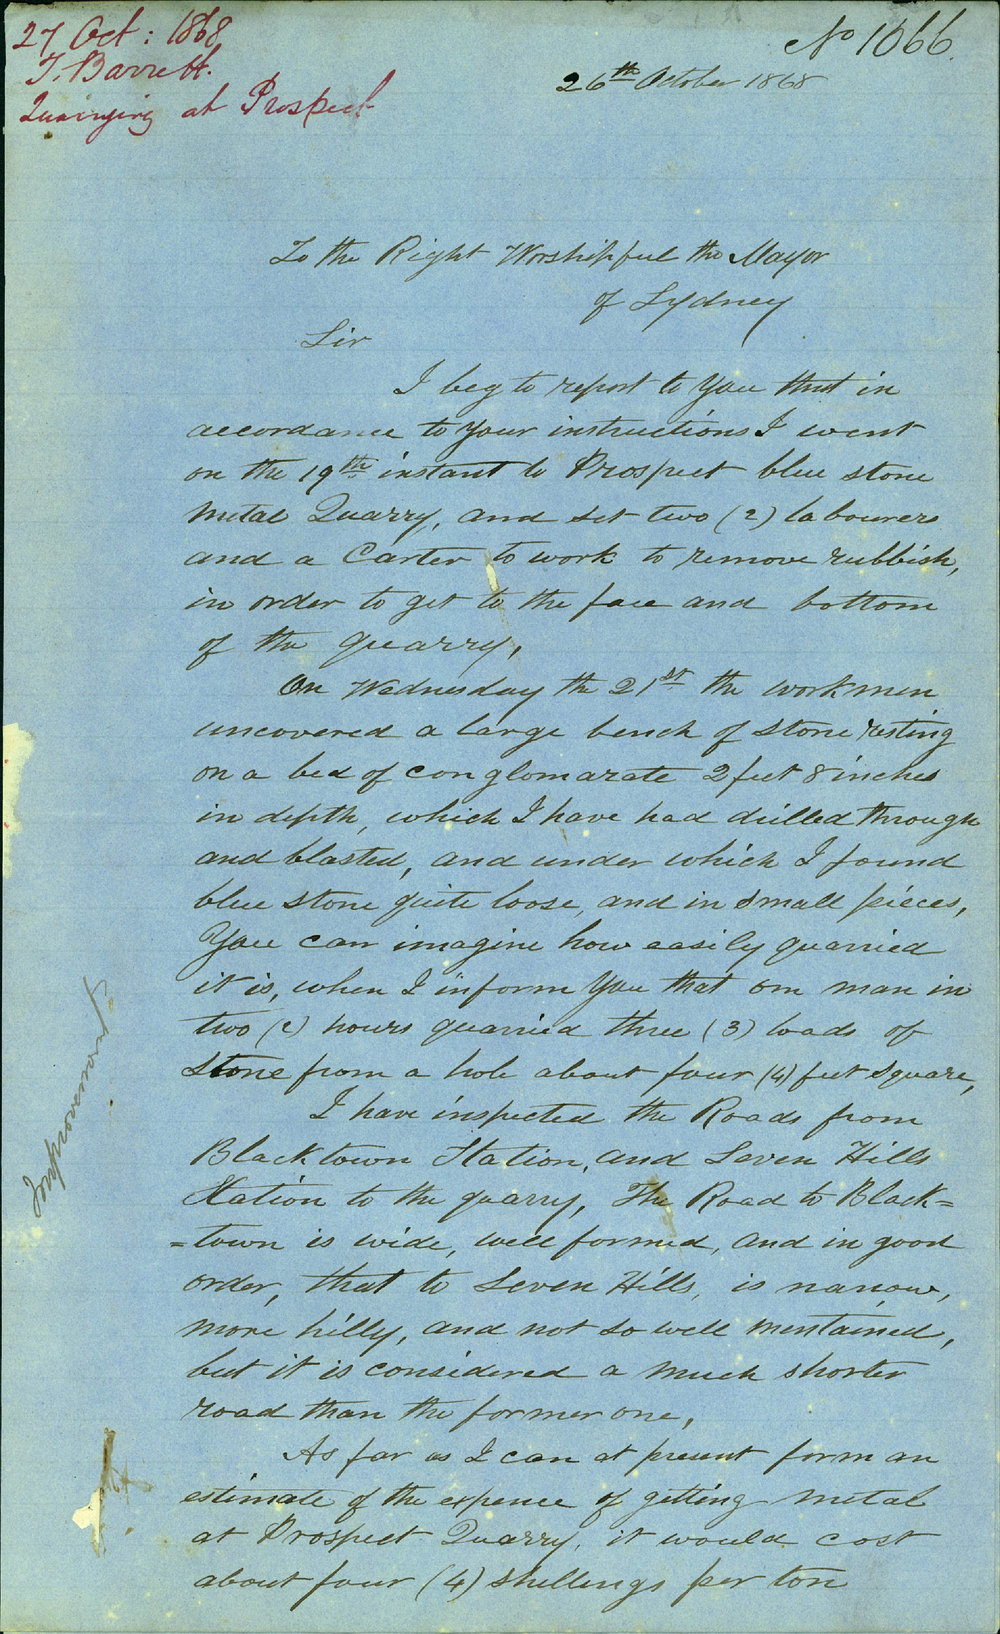 27 Oct: 1868
T. Barrett.
Quarrying at Prospect
No 1066.
26th October 1868
To the Right Worshipful the Mayor
of Sydney
Sir
I beg to report to You that in
accordance to Your instructions I went
on the 19th instant to Prospect blue stone
metal Quarry, and set two (2) labourers
and a Carter to work to remove rubbish,
in order to get to the face and bottom
of the quarry,
On Wednesday the 21st the workmen
uncovered a large bench of stone resting
on a bed of conglomarate 2 feet 8 inches
in depth, which I have had drilled through
and blasted, and under which I found
blue stone quite loose, and in small pieces,
You can imagine how easily quarried
it is, when I inform You that one man in
two (2) hours quarried three (3) loads of
stone from a hole about four (4) feet square,
I have inspected the Roads from
Blacktown Station, and Seven Hills
Station to the quarry, The Road to Black=
=town is wide, well formed, and in good
order, that to Seven Hills, is narrow,
more hilly, and not so well mentained,
but it is considered a much shorter
road than the former one,
As far as I can at present form an
estimate of the expence of getting metal
at Prospect Quarry, it would cost
about four (4) shillings per ton
Improvements